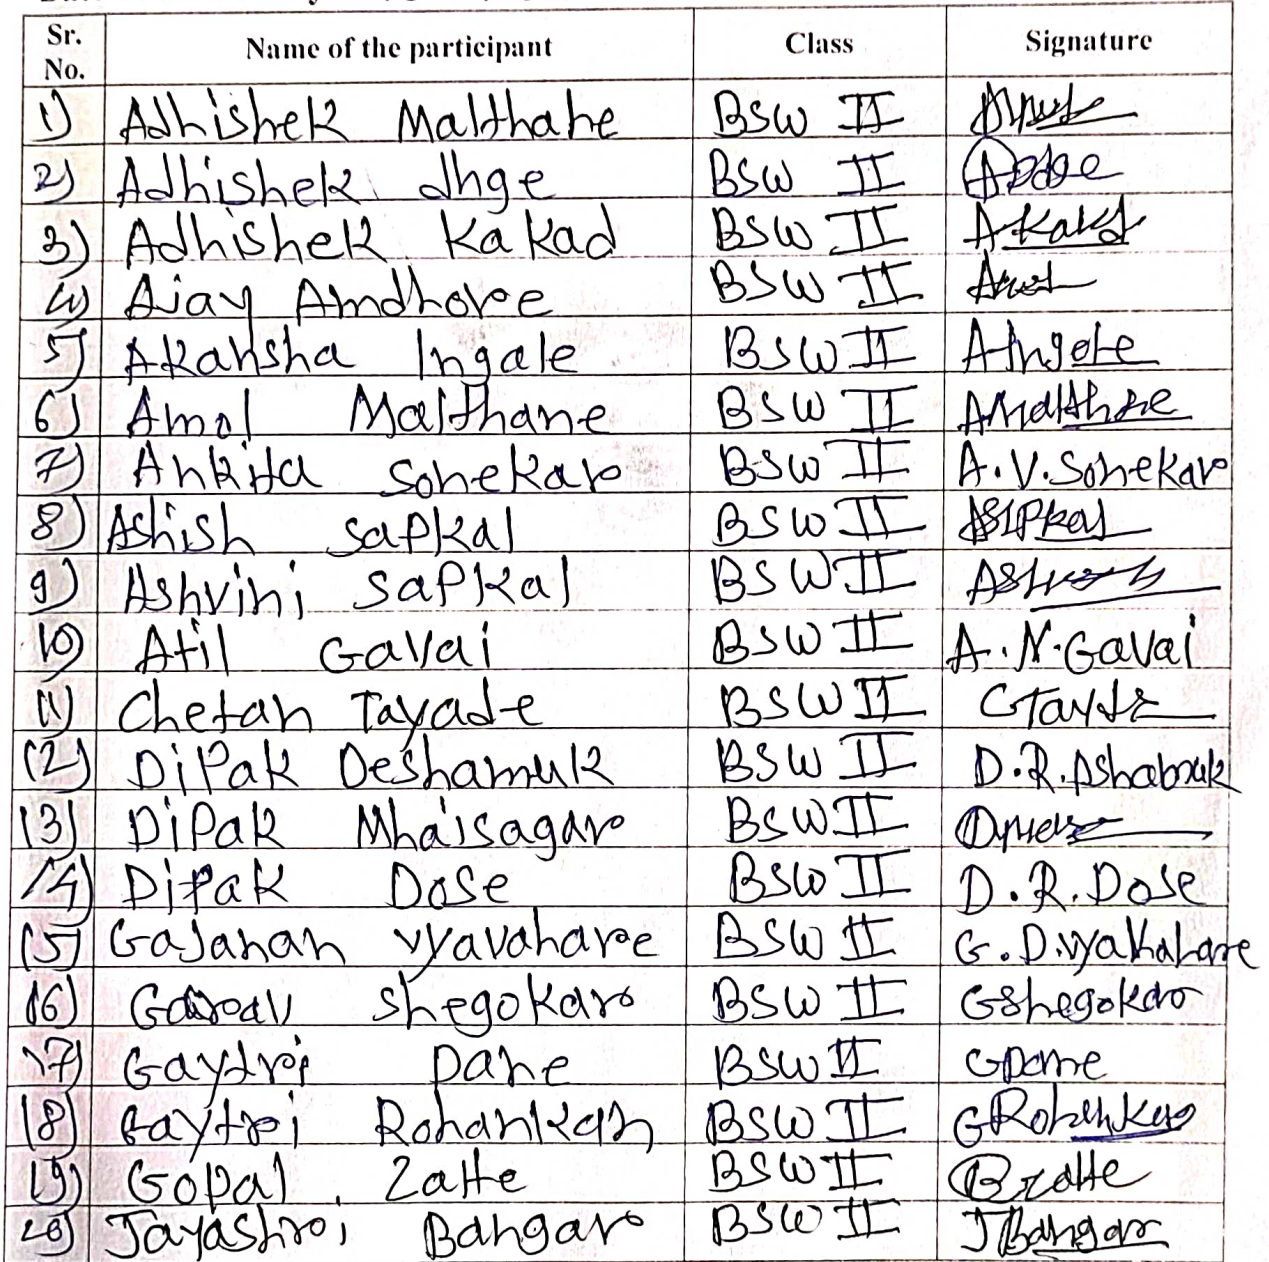 Sr. No. Name of the participant Class Signature
1) Adhishek Malthahe BSW II
2) Adhishek dhge BSW II
3) Adhishek Kakad BSW II AKakd
4) Ajay Amdhore BSW II
5) Akahsha Ingale BSW II AIngele
6) Amol Malthane BSW II
7) Ankita Sonekar BSW II A.V.Sonekar
8) Ashish Sapkal BSW II
9) Ashvini Sapkal BSW II
10) Atil Gavai BSW II A.N.Gavai
11) Chetan Tayade BSW II
12) Dipak Deshamuk BSW II D.R.
13) Dipak Mhaisagar BSW II
14) Dipak Dose BSW II D.R.Dose
15) Gajanan vyavahare BSW II G.D.vyavahare
16) shegokar BSW II Gshegokar
17) Gaytri pane BSW II Gpane
18) Gaytri Rohankar BSW II
19) Gopal Zatte BSW II
20) Jayashri Bangar BSW II JBangar